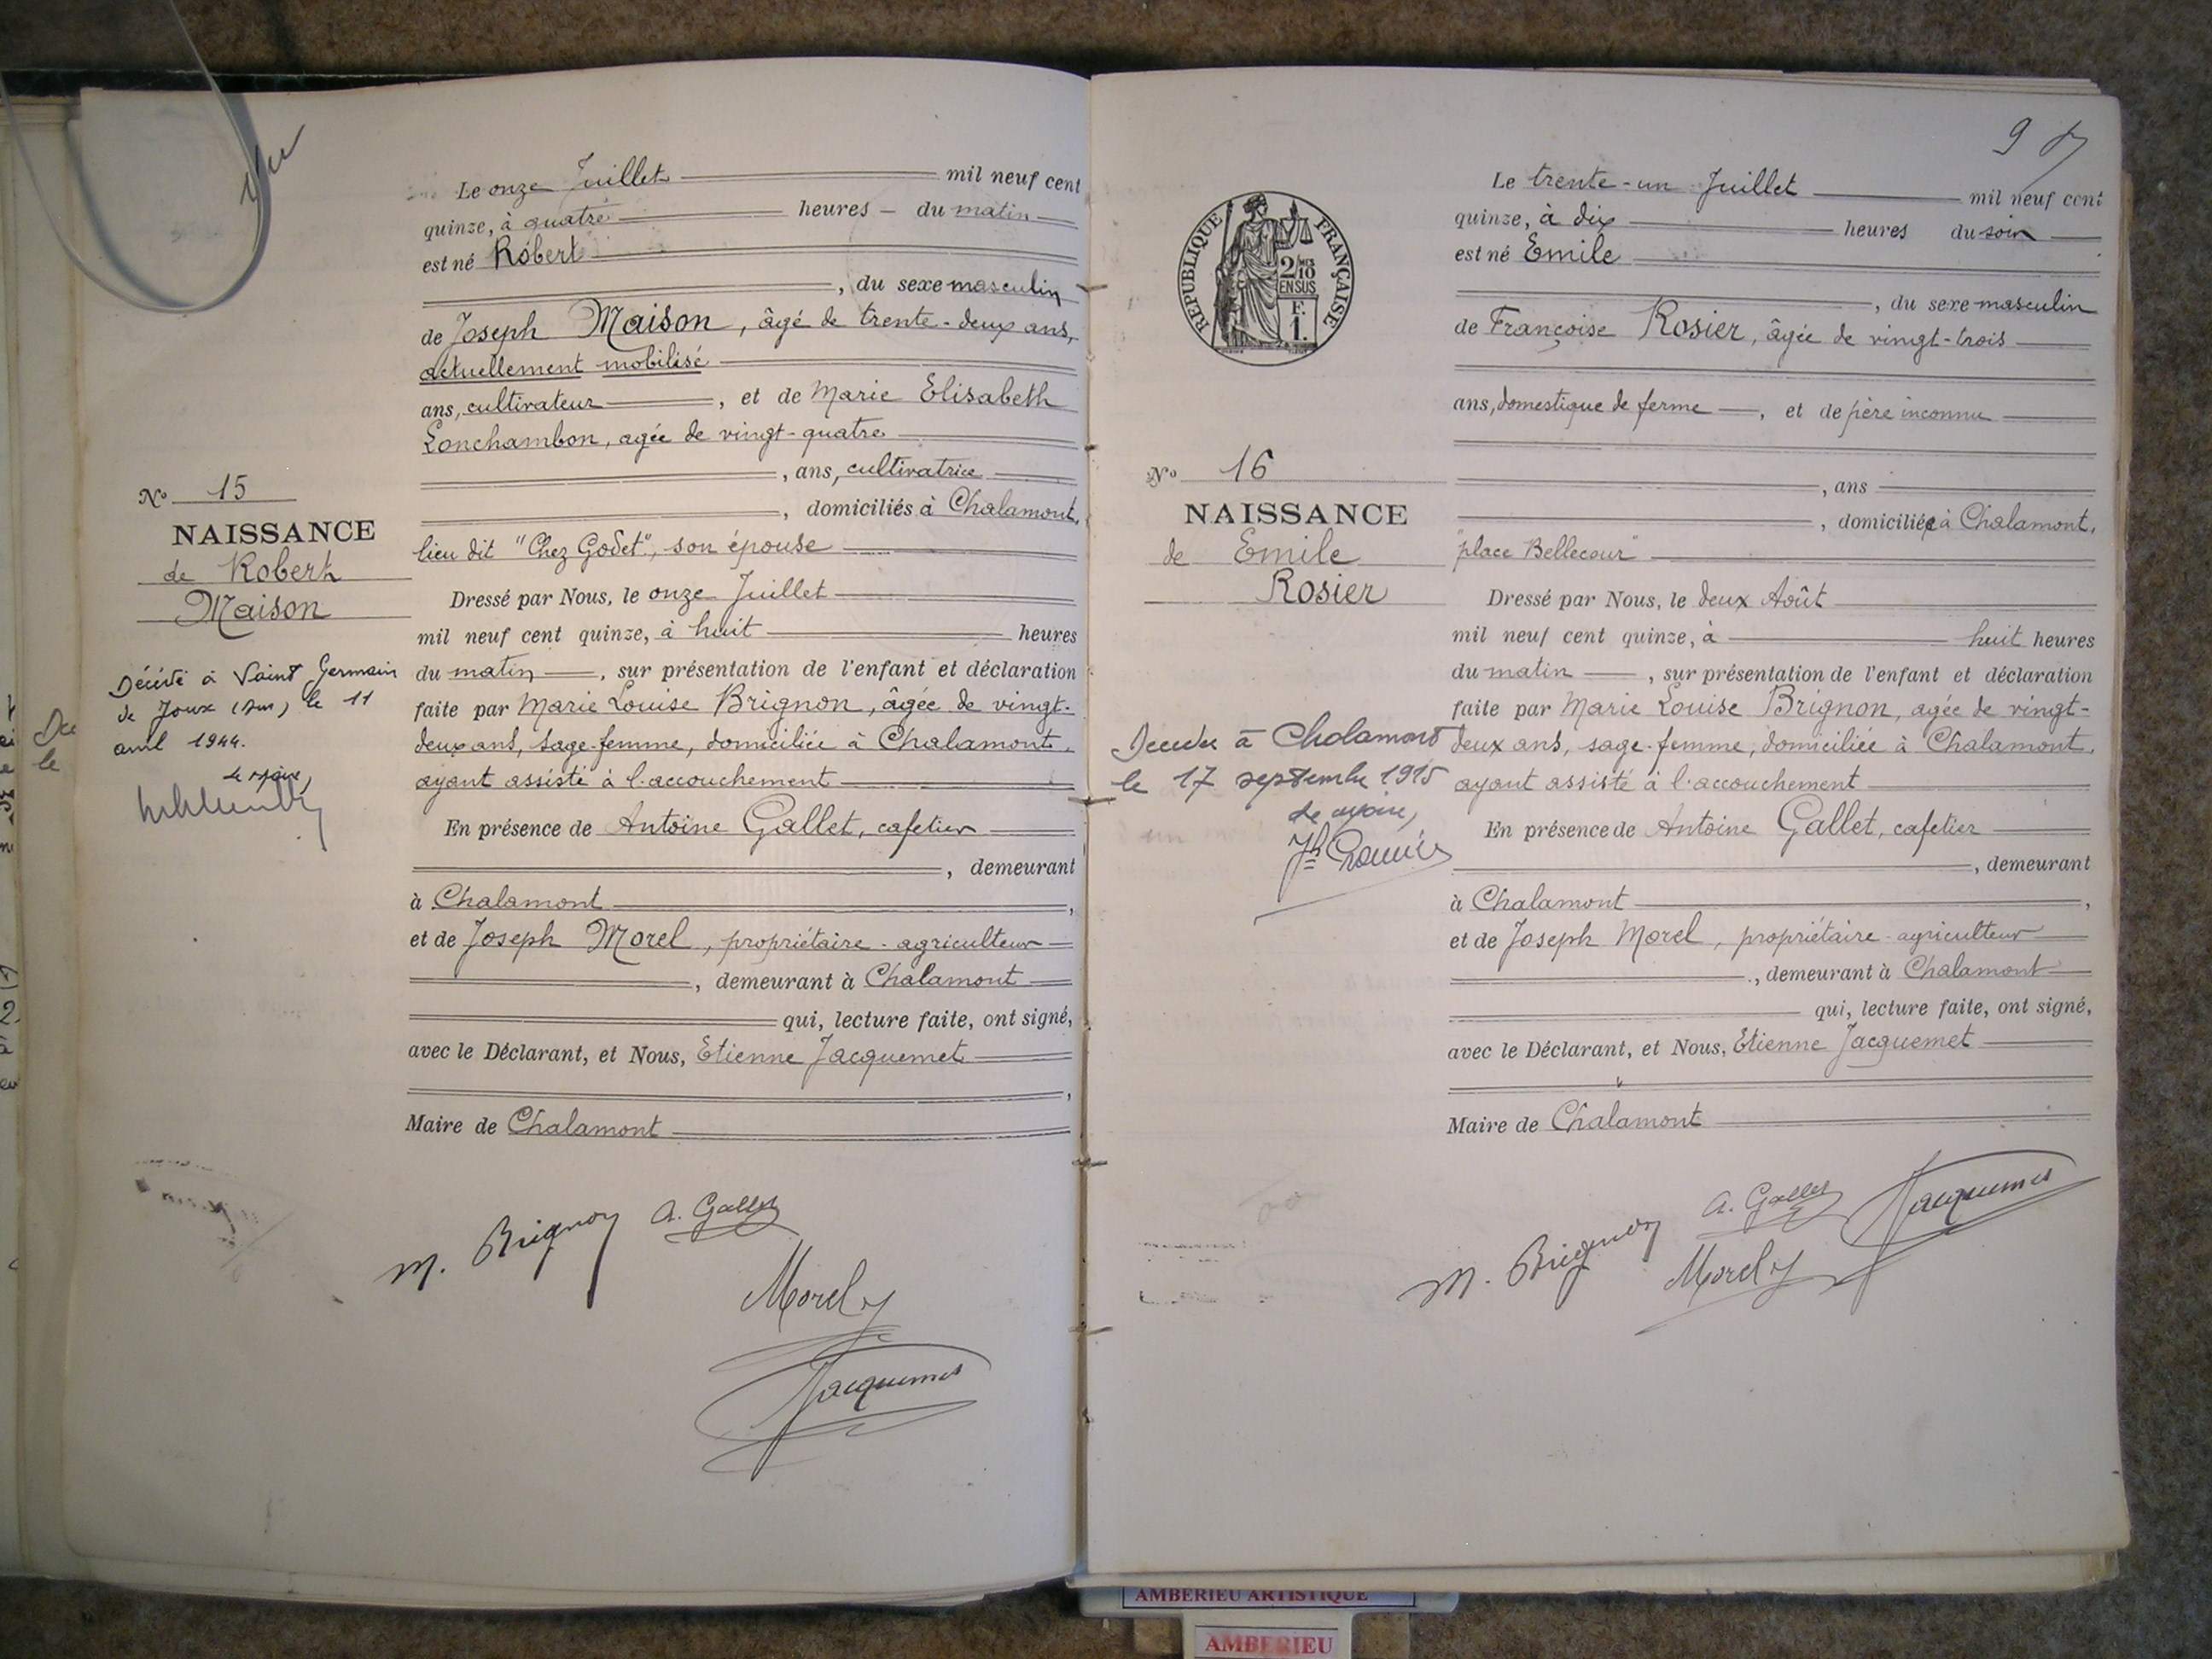 Vu
Le onze Juillet mil neuf cent
quinze, à quatre heures – du matin
est né Robert
, du sexe masculin
de Joseph Maison, âgé de trente-deux ans,
actuellement mobilisé
ans, cultivateur, et de Marie Elisabeth
Lonchambon, agée de vingt-quatre
, ans, cultivatrice
, domiciliés à Chalamont,
lieu dit "Chez Godet", son épouse
N° 15
NAISSANCE
de Robert
Maison
Décédé à Saint Germain
de Joux (Ain) le 11
avril 1944.
Le Maire,
Dressé par Nous, le onze Juillet
mil neuf cent quinze, à huit heures
du matin, sur présentation de l'enfant et déclaration
faite par Marie Louise Brignon, âgée de vingt-
deux ans, sage-femme, domiciliée à Chalamont,
ayant assisté à l'accouchement
En présence de Antoine Gallet, cafetier
, demeurant
à Chalamont,
et de Joseph Morel, propriétaire-agriculteur
, demeurant à Chalamont
qui, lecture faite, ont signé,
avec le Déclarant, et Nous, Etienne Jacquemet
,
Maire de Chalamont
M. Brignon A. Gallet
Morel J
Jacquemet
9
REPUBLIQUE FRANÇAISE
2/10 MES
EN SUS
F.
1.
Le trente-un Juillet mil neuf cent
quinze, à dix heures du soir
est né Emile
, du sexe masculin
de Françoise Rosier, âgée de vingt-trois
ans, domestique de ferme, et de père inconnu
, ans
, domiciliée à Chalamont,
"place Bellecour"
N° 16
NAISSANCE
de Emile
Rosier
Décédé à Chalamont
le 17 septembre 1915
Le Maire,
Dressé par Nous, le deux Août
mil neuf cent quinze, à huit heures
du matin, sur présentation de l'enfant et déclaration
faite par Marie Louise Brignon, agée de vingt-
deux ans, sage-femme, domiciliée à Chalamont,
ayant assisté à l'accouchement
En présence de Antoine Gallet, cafetier
, demeurant
à Chalamont,
et de Joseph Morel, propriétaire-agriculteur
, demeurant à Chalamont
qui, lecture faite, ont signé,
avec le Déclarant, et Nous, Etienne Jacquemet
Maire de Chalamont
M. Brignon A. Gallet Jacquemet
Morel J
AMBERIEU ARTISTIQUE
AMBERIEU